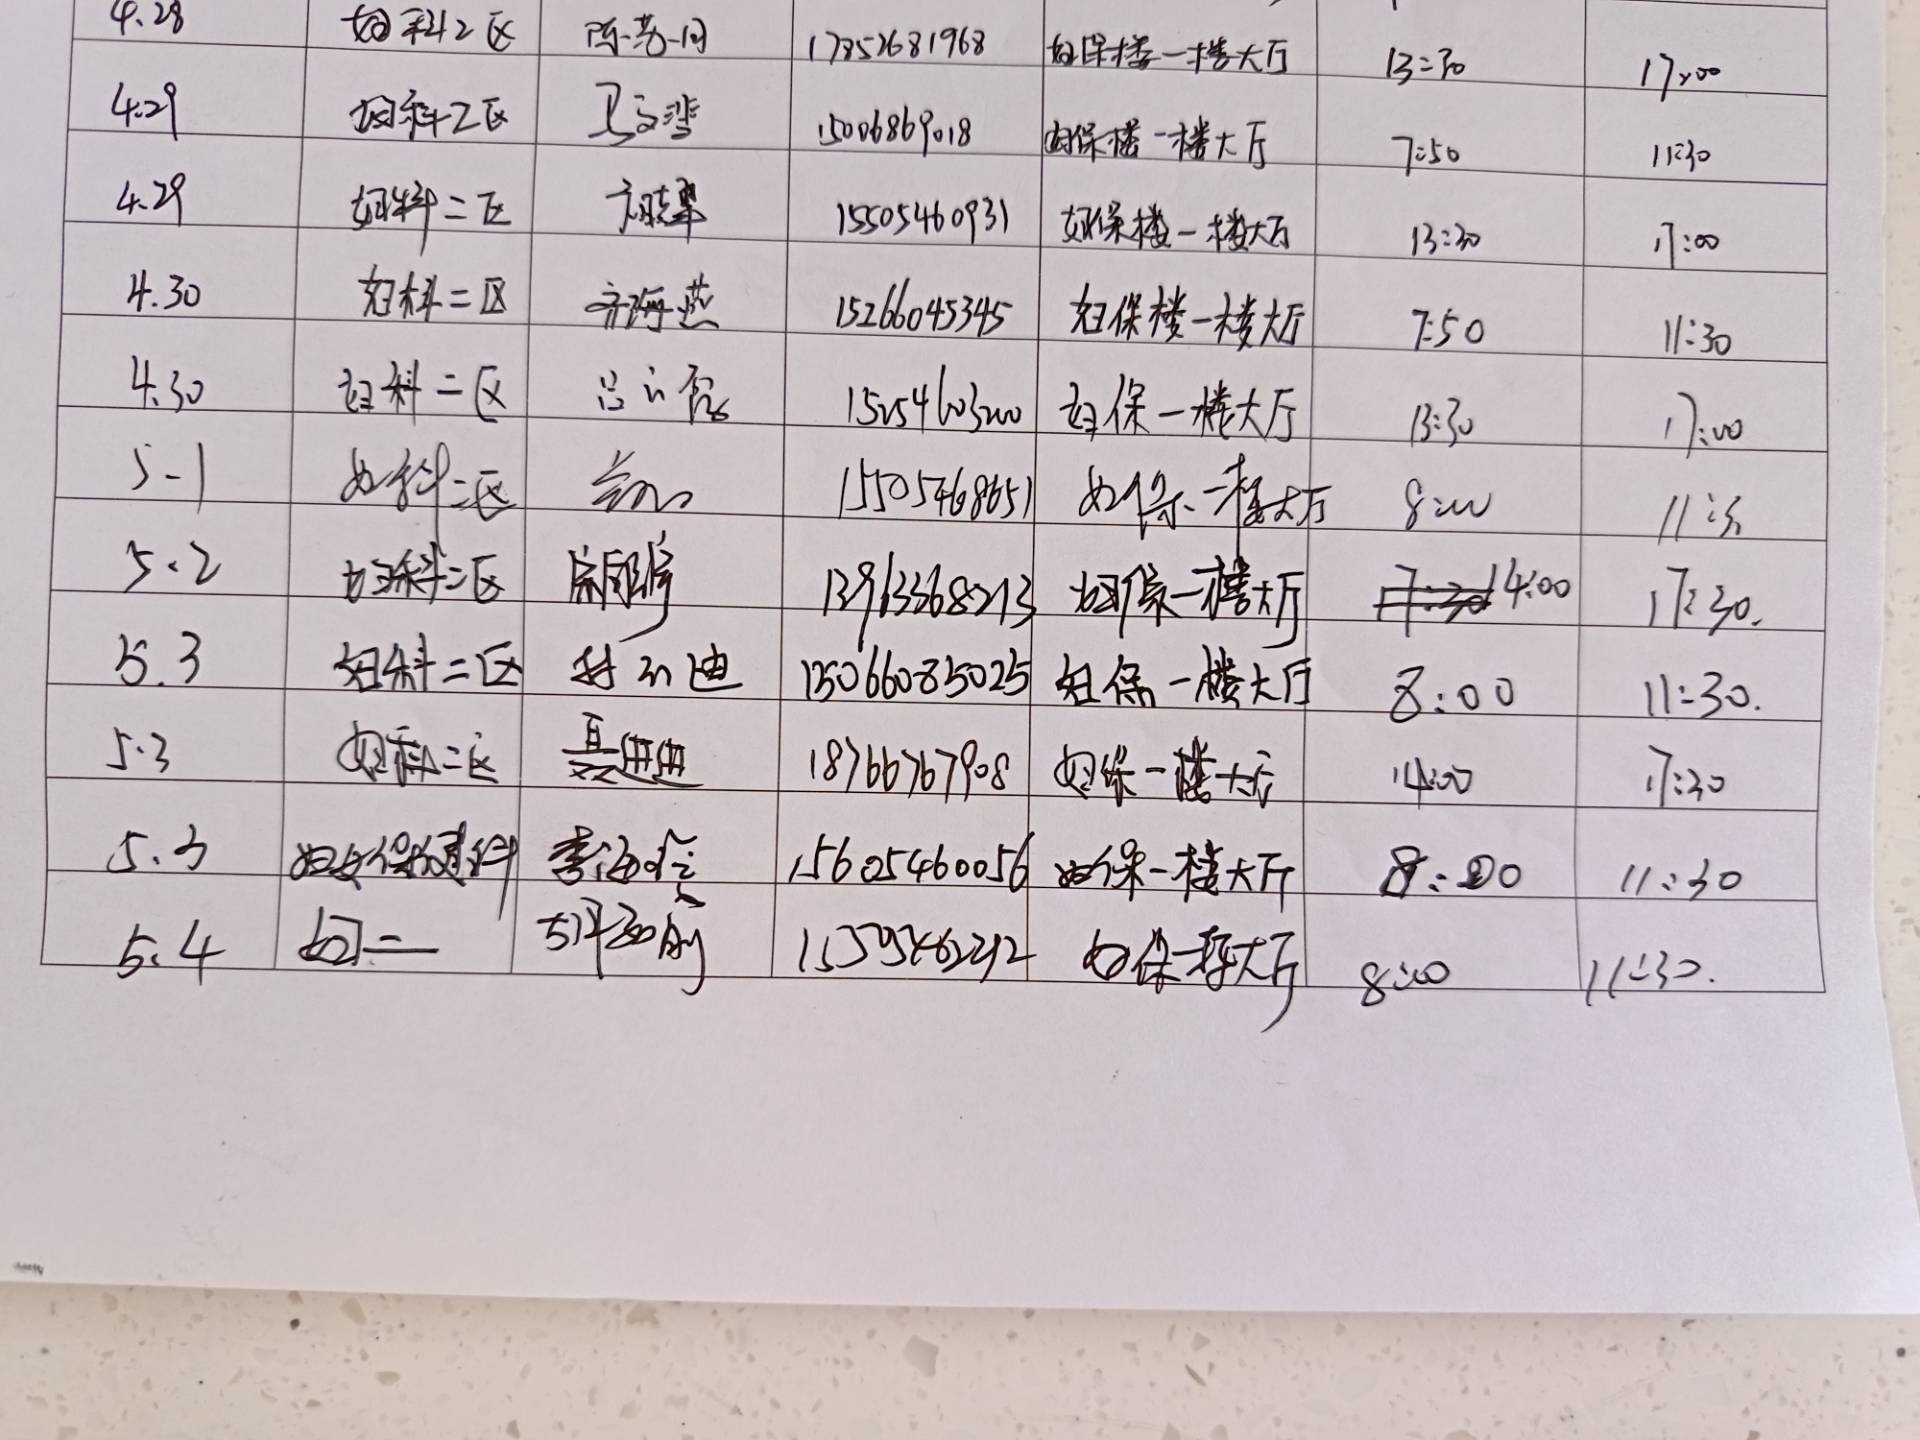 4.28 妇科2区 17852681968 妇保楼一楼大厅 13:30 17:00
4.29 妇科2区 15006869018 妇保楼一楼大厅 7:50 11:30
4.29 妇科二区 15505460931 妇保楼一楼大厅 13:30 17:00
4.30 妇科二区 齐海燕 15266045345 妇保楼一楼大厅 7:50 11:30
4.30 妇科二区 妇保一楼大厅 13:30 17:00
5-1 妇科二区 15505468651 妇保一楼大厅 8:00 11:30
5.2 妇科二区 妇保一楼大厅 14:00 17:30.
5.3 妇科二区 妇保一楼大厅 8:00 11:30.
5.3 妇科二区 18766767908 妇保一楼大厅 14:00 17:30
5.3 妇女保健科 15605460056 妇保一楼大厅 8:00 11:30
5.4 妇二 妇保一楼大厅 8:00 11:30.